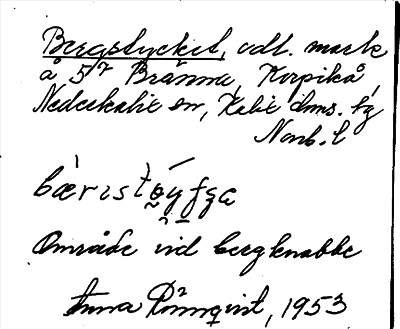 Bergstycket, odl. mark
å 5² Bränna, Korpikå,
Nederkalix sn, Kalix dms. tg
Norrb. l
Område vid bergknabbe
Anna Rönnqvist, 1953